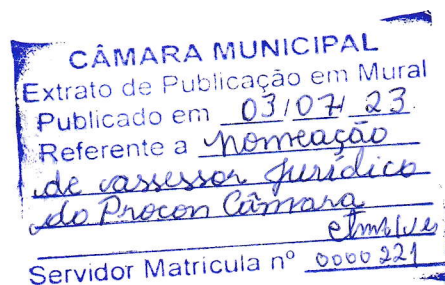 CÂMARA MUNICIPAL
Extrato de Publicação em Mural
Publicado em 03/07/23
Referente a nomeação
de assessor Jurídico
do Procon Câmara
Servidor Matricula nº 0000221